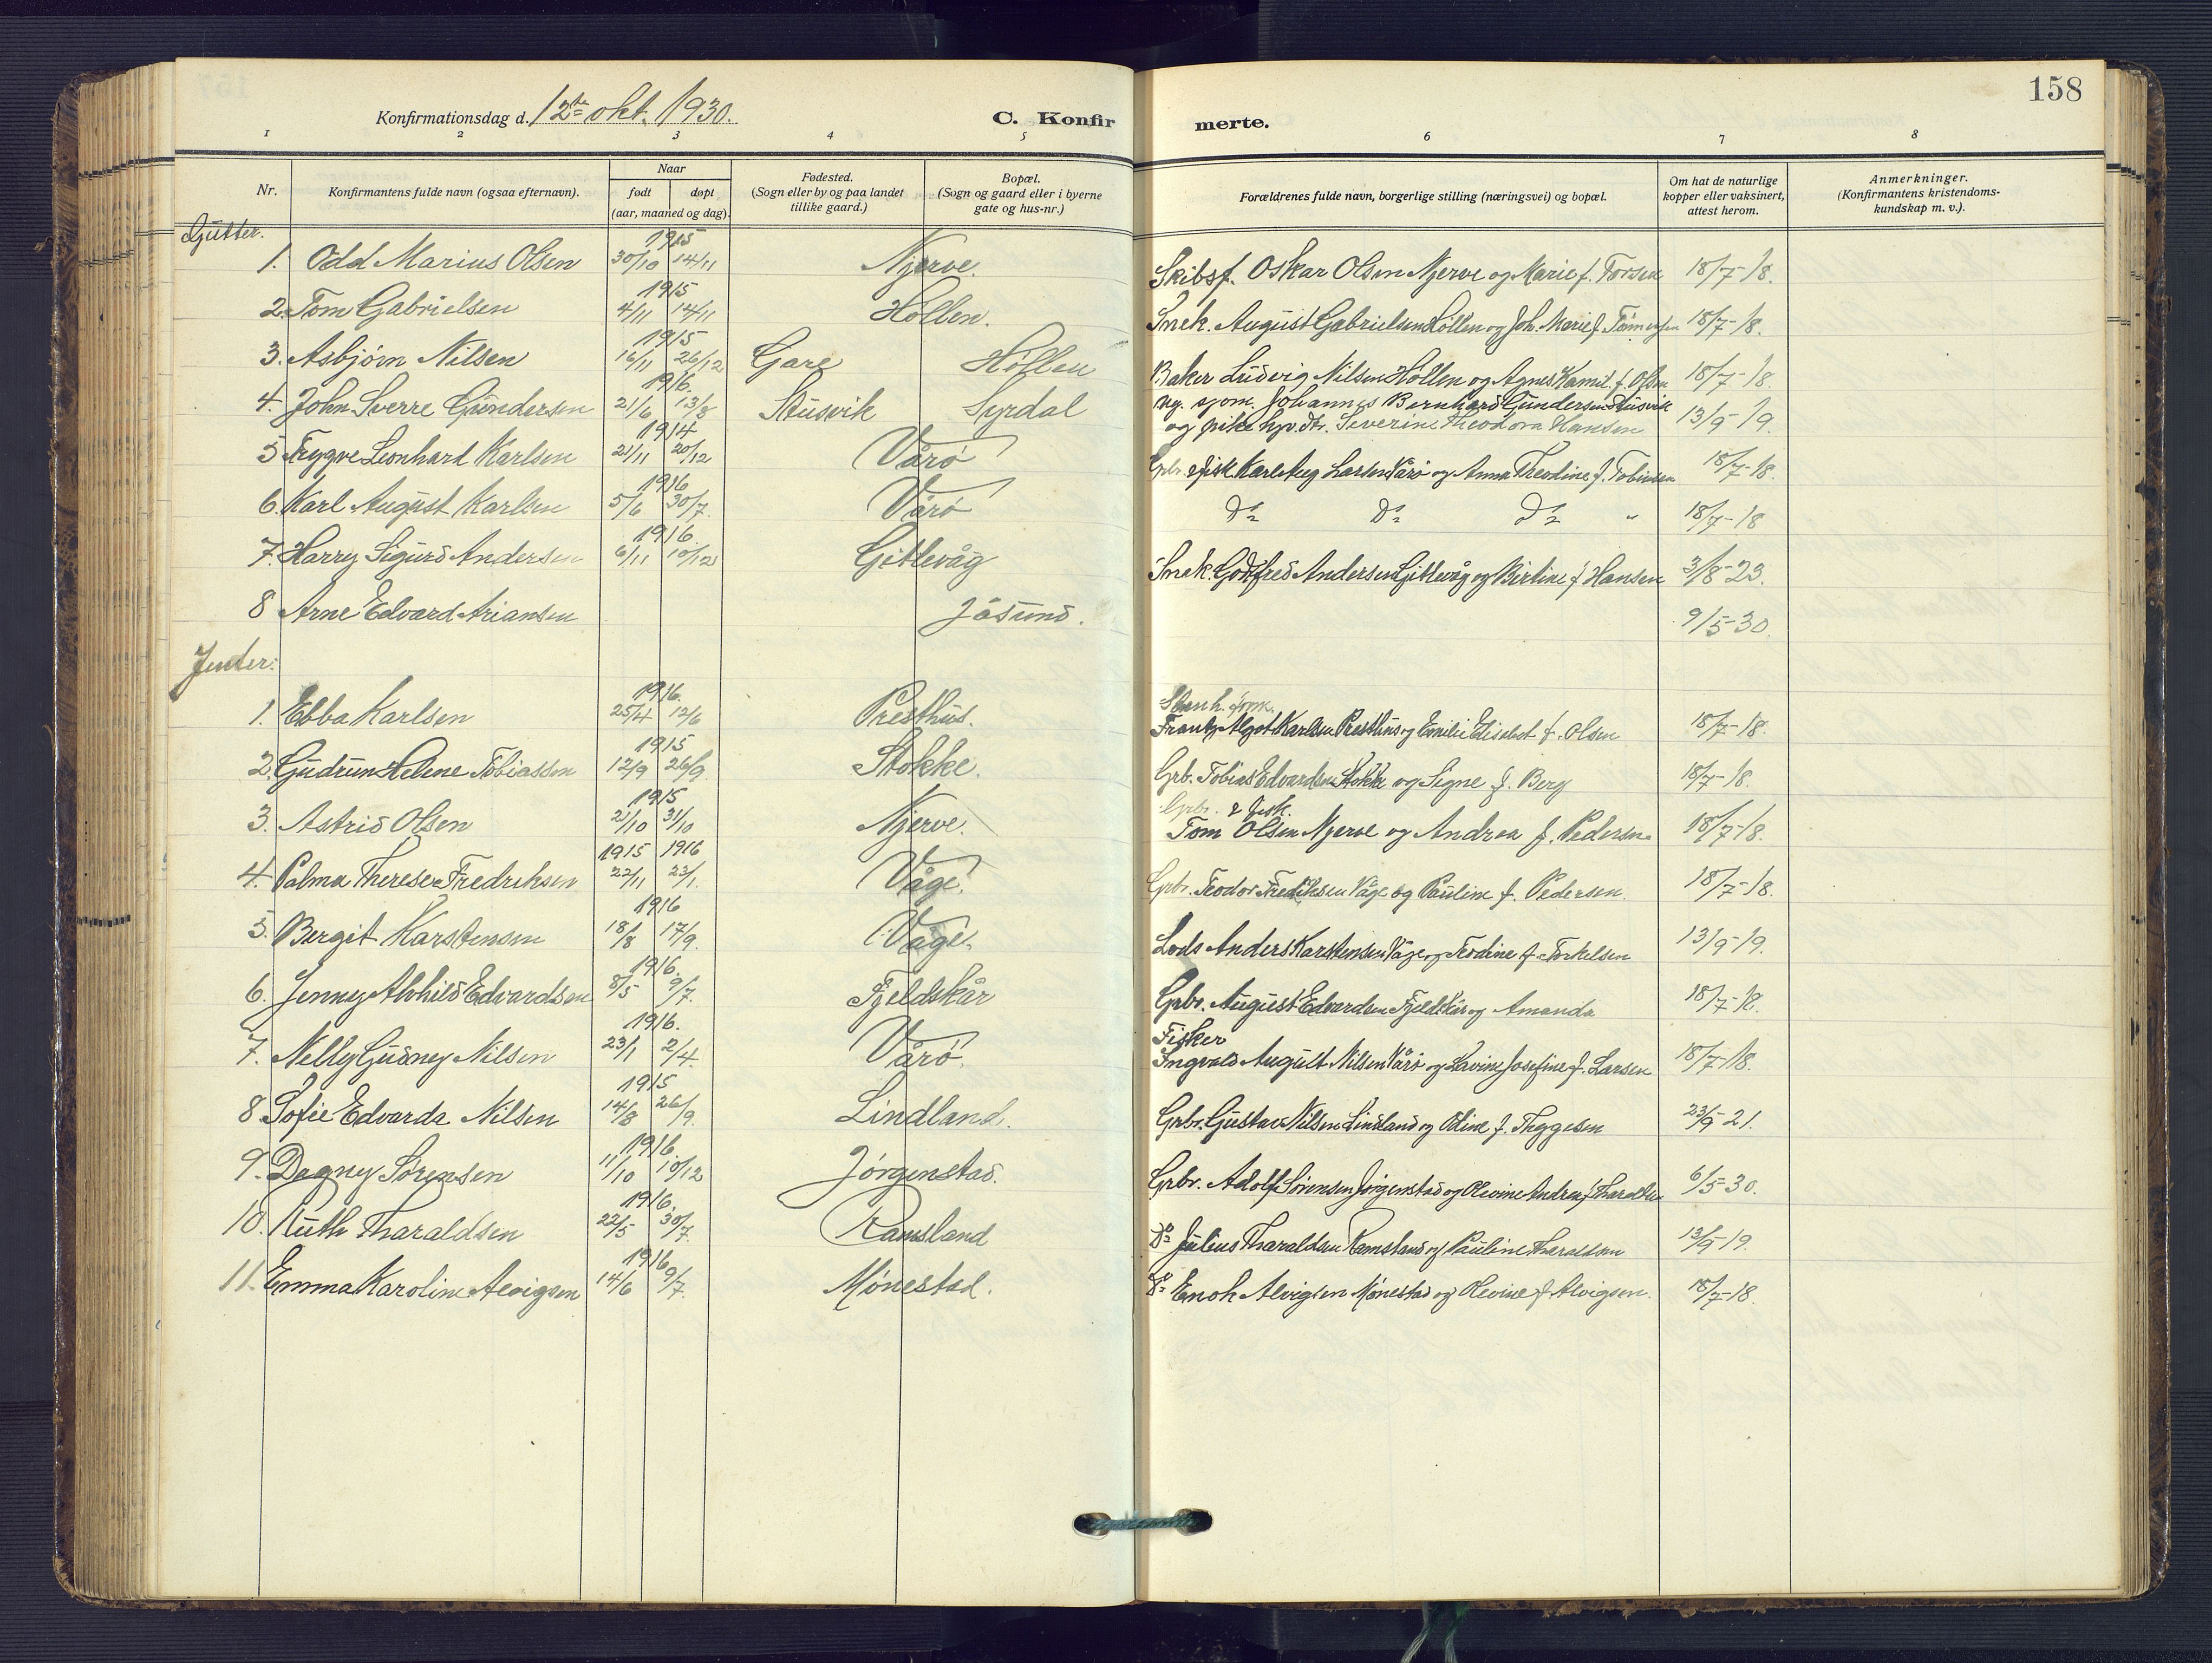 158
Konfirmationsdag d. 12te okt. 1930.
C. Konfirmerte.
1 2 3 4 5 6 7 8
Nr.
Konfirmantens fulde navn (ogsaa efternavn).
Naar
født døpt
(aar, maaned og dag).
Fødested.
(Sogn eller by og paa landet
tillike gaard.)
Bopæl.
(Sogn og gaard eller i byerne
gate og hus-nr.)
Forældrenes fulde navn, borgerlige stilling (næringsvei) og bopæl.
Om hat de naturlige
kopper eller vaksinert,
attest herom.
Anmerkninger.
(Konfirmantens kristendoms-
kundskap m. v.).
Gutter.
1915
1. Odd Marius Olsen 30/10 14/11 Njerve. Skibsf. Oskar Olsen Njerve og Marie f. Torsen 18/7-18.
1915
2. Tom Gabrielsen 4/11 14/11 Höllen. Snek. August Gabrielsen Höllen og Joh. Marie f. 18/7-18.
1915
3. Asbjörn Nilsen 16/11 26/12 Gare Höllen Baker Ludvig Nilsen Höllen og Agnes Kamil. f. Olsen 18/7-18.
1916.
4. John Sverre Gundersen 21/6 13/8 Stusvik Syrdal ug. sjom. Johannes Bernhard Gundersen Stusvik
og pike hpv. dtr. Severine Theodora Hansen 13/9-19.
1914
5 Trygve Leonhard Karlsen 21/11 20/12 Vårö Gbr. & fisk. Karl Aug Larsen Vårö og Anna Theodine f. Tobiassen 18/7-18.
1916
6. Karl August Karlsen 5/6 30/7. Vårö Do Do Do " 18/7-18
1916.
7. Harry Sigurd Andersen 6/11 10/12 Gitlevåg Snek. Godtfred Andersen Gitlevåg og Birtine f Hansen 3/8-23.
8 Arne Edvard Ariansen Jåsund. 9/5-30.
Jenter:
1916. Stenh. form.
1. Ebba Karlsen 25/4 12/6 Presthus. Frantz Algot Karlsen Presthus og Emilie Elisabet f. Olsen 18/7-18.
1915
2. Gudrun Helene Tobiassen 12/9 26/9 Stokke. Grb. Tobias Edvardsen Stokke og Signe f. Berg 18/7-18.
1915 Grbr. & fisk.
3. Astrid Olsen 21/10 31/10 Njerve. Tom Olsen Njerve og Andrea f. Pedersen 18/7-18.
1915 1916
4. Palma Therese Fredriksen 22/11 23/1. Våge. Grbr. Teodor Fredriksen Våge og Pauline f. Pedersen. 18/7-18.
1916
5. Bergit Karstensen 18/8 17/9. Våge. Lods Anders Karstensen Våge og Teodine f. Torkelsen 13/9-19.
1916.
6. Jenny Alvhild Edvardsen 8/5 9/7. Fjeldskår Grbr. August Edvardsen Fjeldskår og Amanda 18/7-18.
1916. Fisker
7. Nelly Gudney Nilsen 23/1 2/4. Vårö. Ingvald August Nilsen Vårö og Lavine Josefine f. Larsen 18/7-18.
1915
8 Sofie Edvarda Nilsen 14/8 26/9. Lindland. Grbr. Gustav Nilsen Lindland og Odine f. Theggesen 23/9-21.
1916.
9. Dagny Sörensen 11/10 10/12 Jörgenstad. Grbr. Adolf Sörensen Jörgenstad og Olevine Andrea f Tharaldsen 6/5-30.
1916.
10. Ruth Tharaldsen 22/5 30/7. Ramsland Do Julius Tharaldsen Ramsland og Pauline Tharaldsen 13/9-19.
1916
11. Emma Karoline Alvigsen 14/6 9/7. Mönestad. Do Enok Alvigsen Mönestad og Olevine f Alvigsen. 18/7-18.